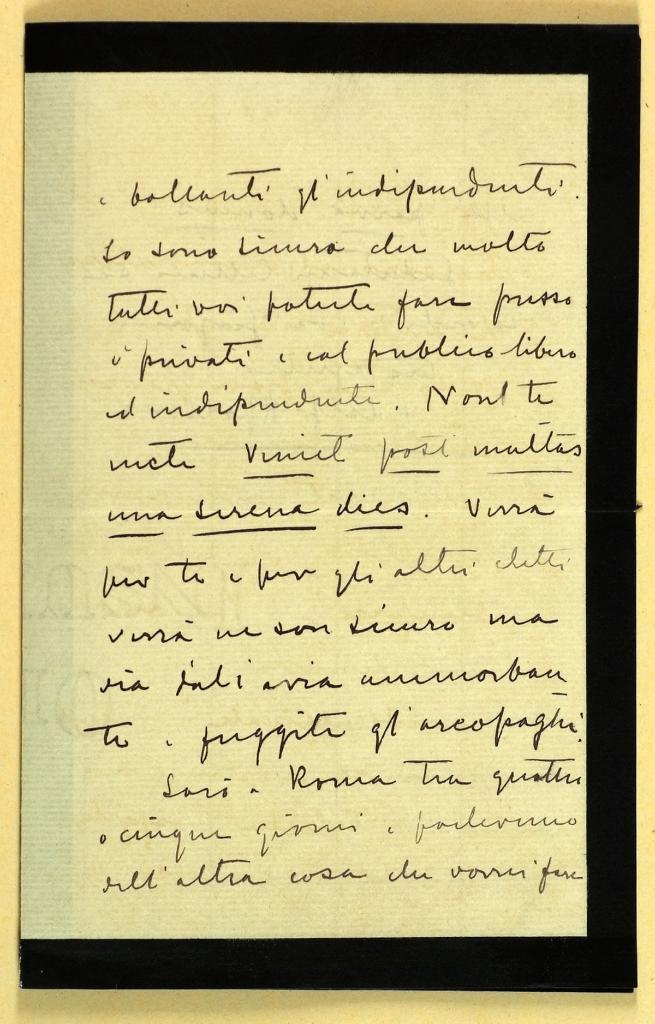 e battenti gl'indipendenti.
Io sono sicuro che molto
tutti voi potrete fare presso
i privati e col publico libero
ed indipendente. Non
Veniet post multas
una serena dies. Verrà
per te e per gli altri eletti
verrà ne son sicuro ma
via dall'aria ammorban
te e fuggite gl'areopaghi.
Sarò a Roma tra quattro
o cinque giorni e parleremo
dell'altra cosa che vorrei fare